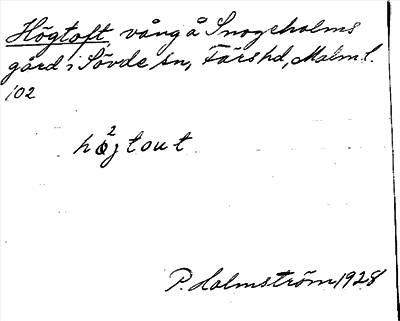 Högtoft vång å Snogeholms
gård i Sövde sn, Färs hd, Malm. l.
102
hö²jtout
P. Holmström 1928